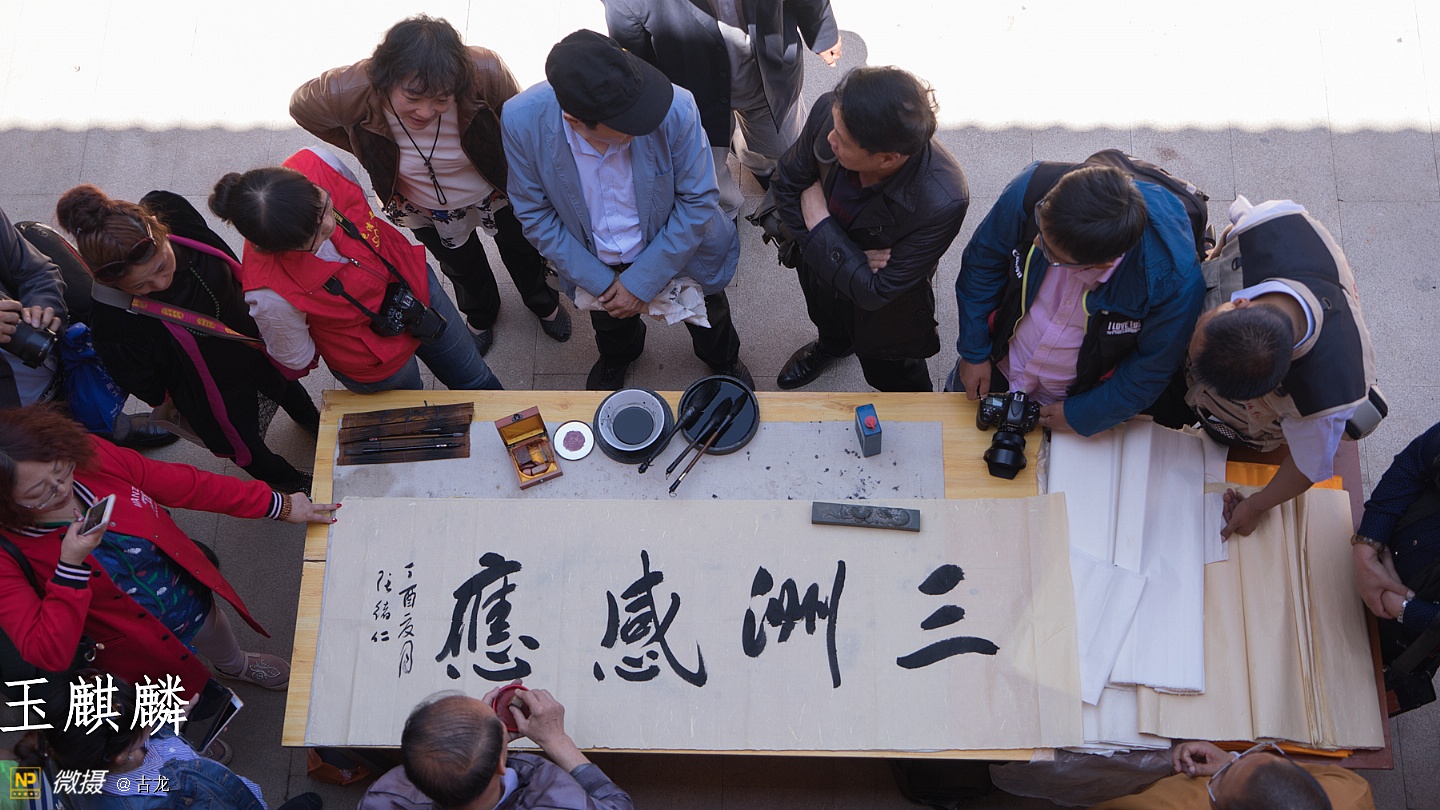 三洲感應
丁酉夏月
張緒仁
I LOVE
玉麒麟
NP 微摄 @古龙